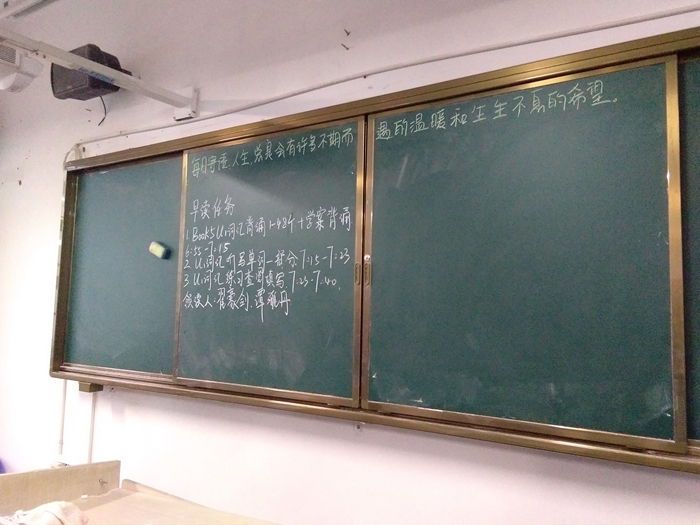 每日寄语:人生总是会有许多不期而
遇的温暖和生生不息的希望。
早读任务
1. Book5 U1词汇背诵 1-48个+学案背诵
6:55-7:15
2. U1词汇听写单词一部分 7:15-7:23
3. U1词汇练习查图填写 7:23-7:40.
领读人:翟豪剑、谭雅丹